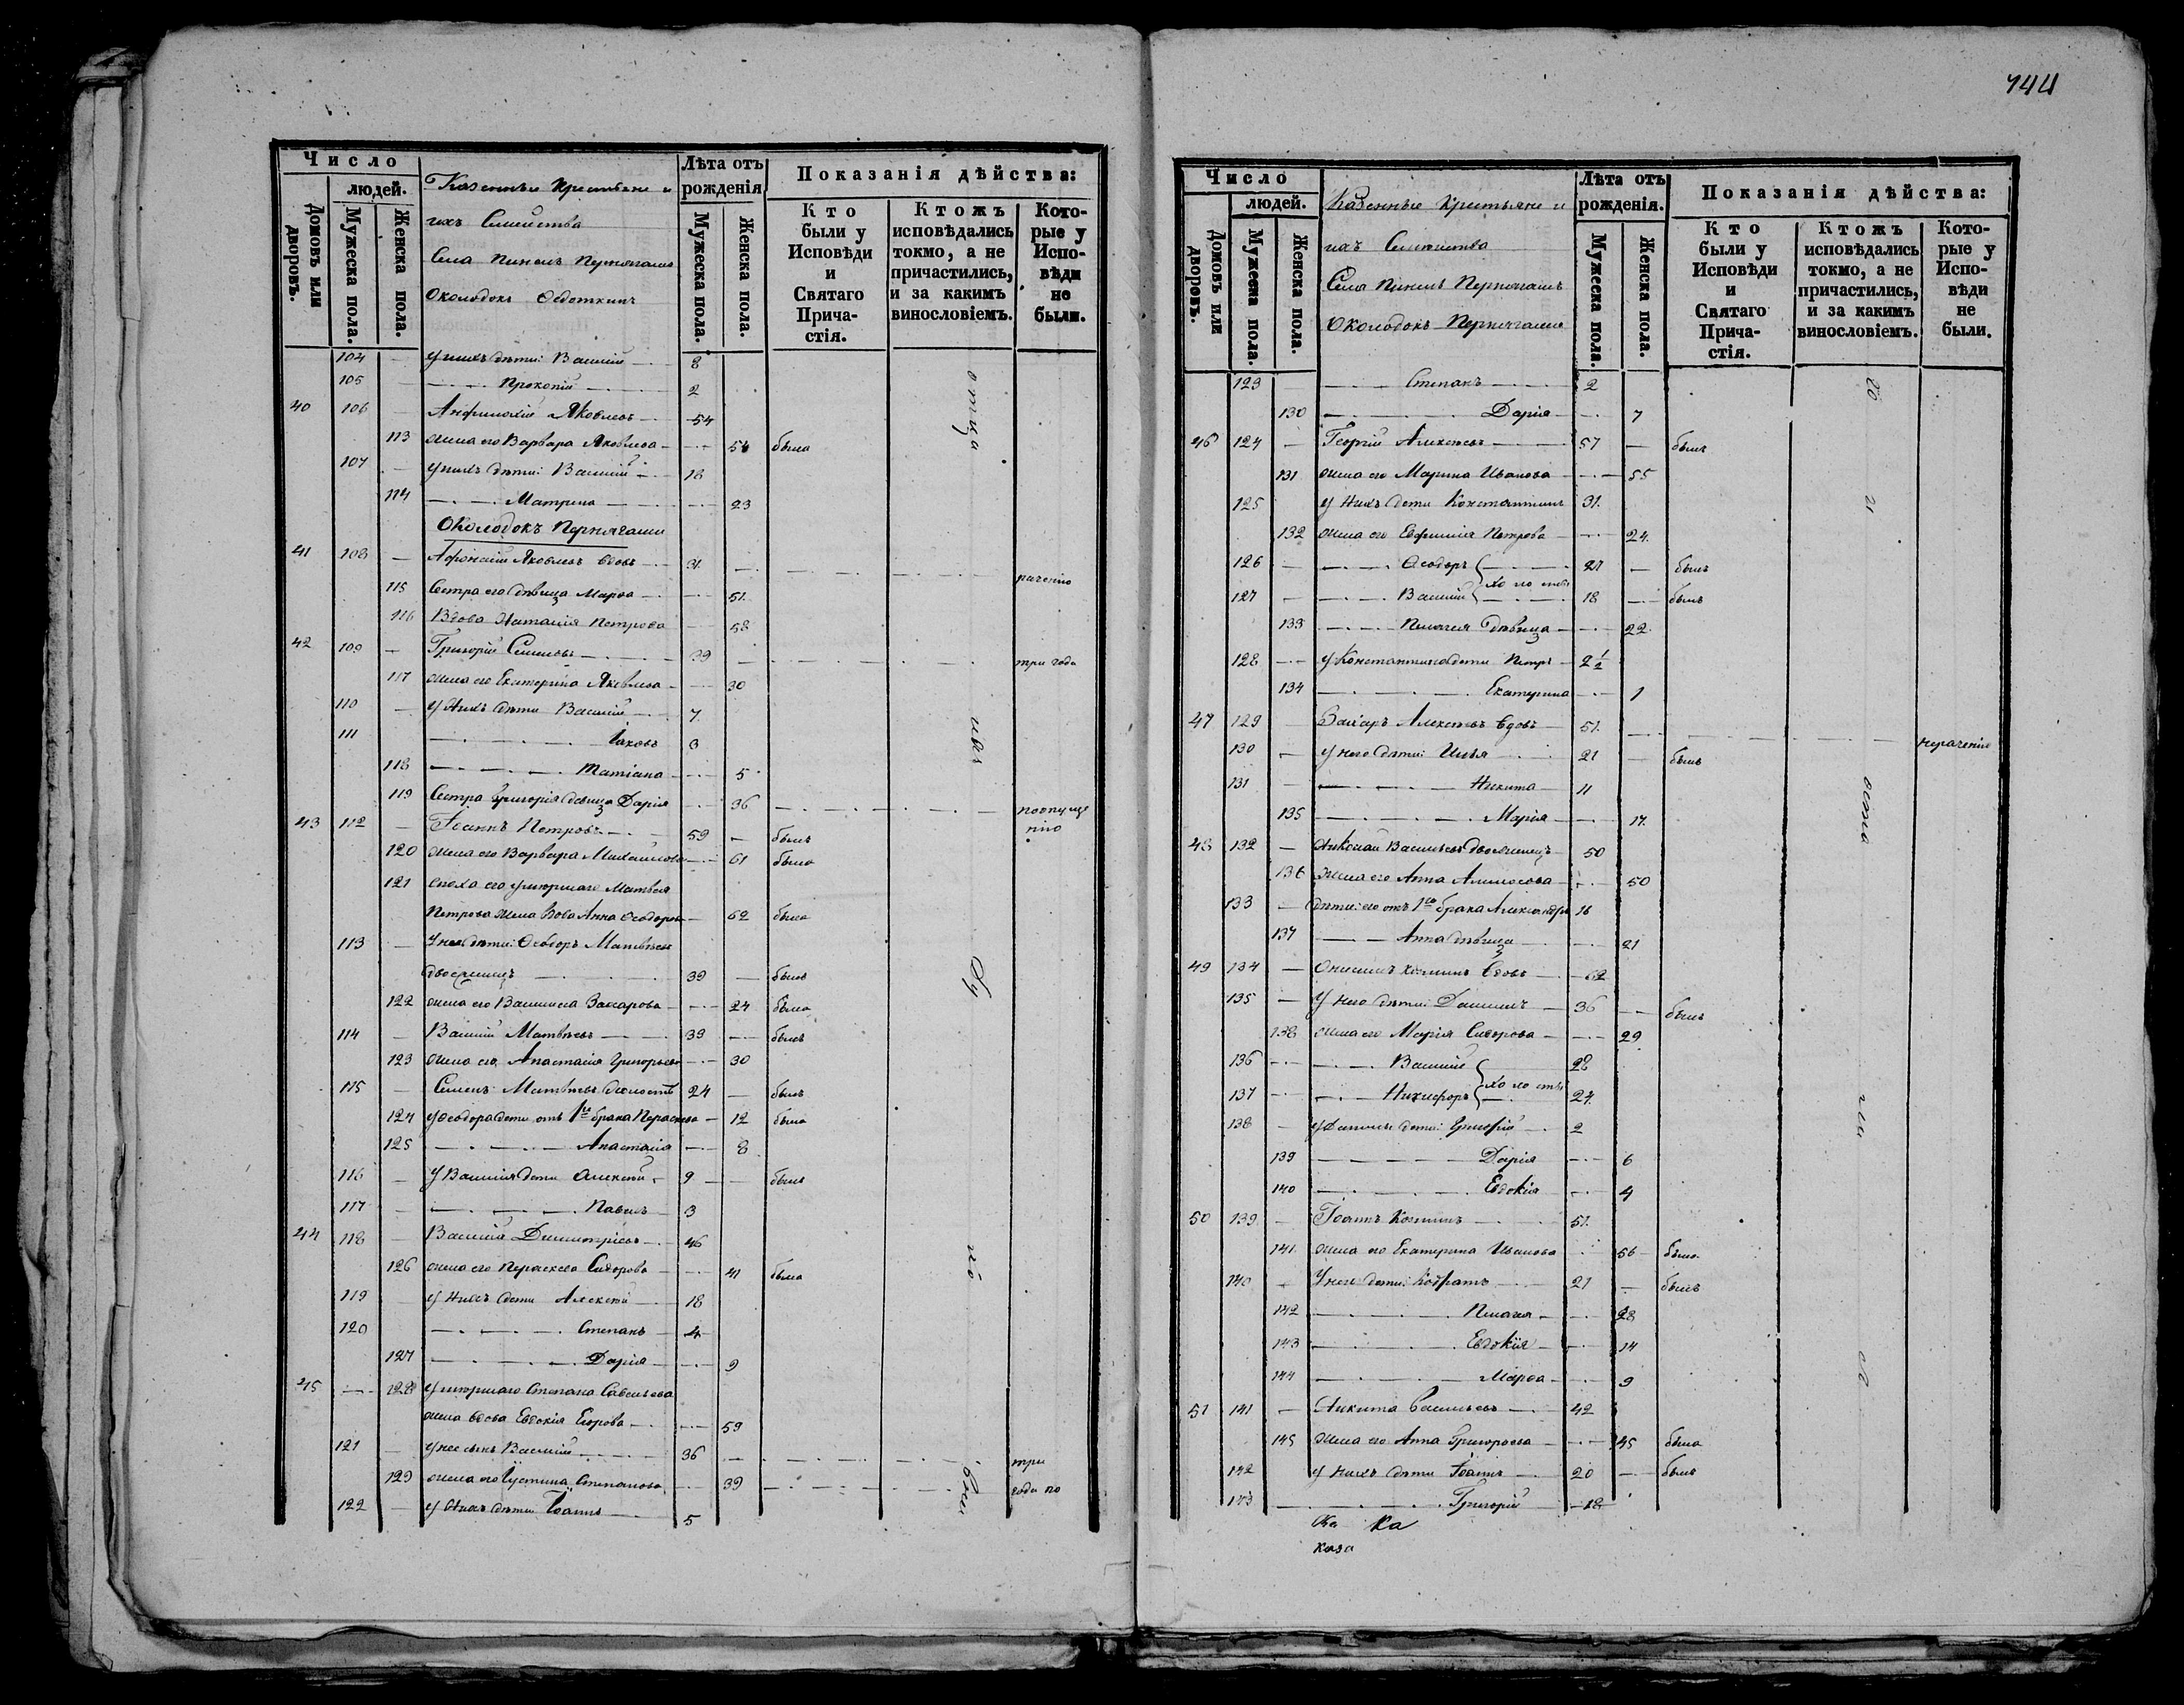 Число
людей.
Домовъ или дворовъ.
Мужеска пола.
Женска пола.
Казенные Крестьяне и
ихъ Семейства
Села
Околодокъ
Лѣта отъ рожденія
Мужеска пола.
Женска пола.
Показанія дѣйства:
Кто были у Исповѣди и Святаго Прича-стія.
Ктожъ исповѣдались токмо, а не причастились, и за какимъ винословіемъ.
Кото-рые у Испо-вѣди не были.
104 — у нихъ дѣти: Василій 8
105 — Прокопій 2
40 106 — Яковлевъ 54
113 жена его Варвара Яковлева 54 была
107 — у нихъ дѣти: Василій 18
114 Матрона 23
Околодокъ
41 108 — Яковлевъ вдовъ
115 Сестра его дѣвица Марѳа 51
116 Вдова Наталія Петрова 58
42 109 — Григорій 39 три года
117 жена его Екатерина Яковлева 30
110 — у нихъ дѣти Василій 7
111 Іаковъ 3
118 Татіана 5
119 Сестра Григорія дѣвица Дарія 36
43 112 — Іоаннъ Петровъ 59 — былъ
120 жена его Варвара Михайлова 61 была
121 сноха его умершаго Матвея
Петрова жена вдова Анна Ѳеодорова 62 была
113 — У нея дѣти: Ѳеодоръ Матвѣевъ
двоеженецъ 39 — былъ
122 жена его Василиса Захарова 24 была
114 — Василій Матвѣевъ 33 былъ
123 жена его Анастасія Григорьева 30
115 — Семенъ Матвѣевъ холостъ 24 — былъ
124 у Ѳеодора дети отъ 1го брака Параскева 12 была
125 Анастасія 8
116 — У Василія дети Алексѣй 9 былъ
117 Павелъ 3
44 118 — Василій Димитріевъ 46
126 жена его Параскева Сидорова 41 была
119 у нихъ дети Алексѣй 18
120 Степанъ 4
127 Дарія 9
45 — 128 умершаго Степана Савельева
жена вдова Евдокія Егорова 59
121 — у нее сынъ Василій 36 три
129 жена его Устина Степанова 39 года по
122 — у нихъ дѣти Іоаннъ 5
144
Число
людей.
Домовъ или дворовъ.
Мужеска пола.
Женска пола.
Казенные Крестьяне и
ихъ Семейства
Села
Околодокъ
Лѣта отъ рожденія.
Мужеска пола.
Женска пола.
Показанія дѣйства:
Кто были у Исповѣди и Святаго Прича-стія.
Ктожъ исповѣдались токмо, а не причастились, и за какимъ винословіемъ.
Кото-рые у Испо-вѣди не были.
123 — Степанъ 2
130 Дарія 7
46 124 — Георгій Алексѣевъ 57 — былъ
131 жена его Марина Иванова 55
125 у нихъ дети Константинъ 31
132 жена его Евфимія Петрова 24
126 — Ѳеодоръ холосты 27 — былъ
127 — Василій 18 былъ
133 Пелагея дѣвица 22
128 у Константина дети Петръ 2 1/2
134 Екатерина 1
47 129 Захаръ Алексѣевъ вдовъ 51 нерачение
130 — у него дѣти: Илья 21 — былъ
131 — Никита 11
135 Марія 17
48 132 — Николай Васильевъ двоеженецъ 50
136 Жена его Анна 50
133 — дѣти его отъ 1го брака Александръ 16
137 Анна дѣвица 21
49 134 — вдовъ 62
135 — У него дѣти: Даниилъ 36 былъ
138 жена его Марія Сидорова 29
136 Василій холосты 28
137 Никифоръ 24
138 — у Данилы дети: Григорій 2
139 Дарія 6
140 Евдокія 4
50 139 — Іоаннъ 51
141 жена его Екатерина Иванова 56 была
140 У нихъ дети: Кодратъ 21 — былъ
142 Пелагея 28
143 Евдокія 14
144 Марѳа 9
51 141 — Никита Васильевъ 42
145 Жена его Анна Григорьева 45 была
142 у нихъ дети Іоаннъ 20 былъ
143 Григорій 18
Ка Ка
каза